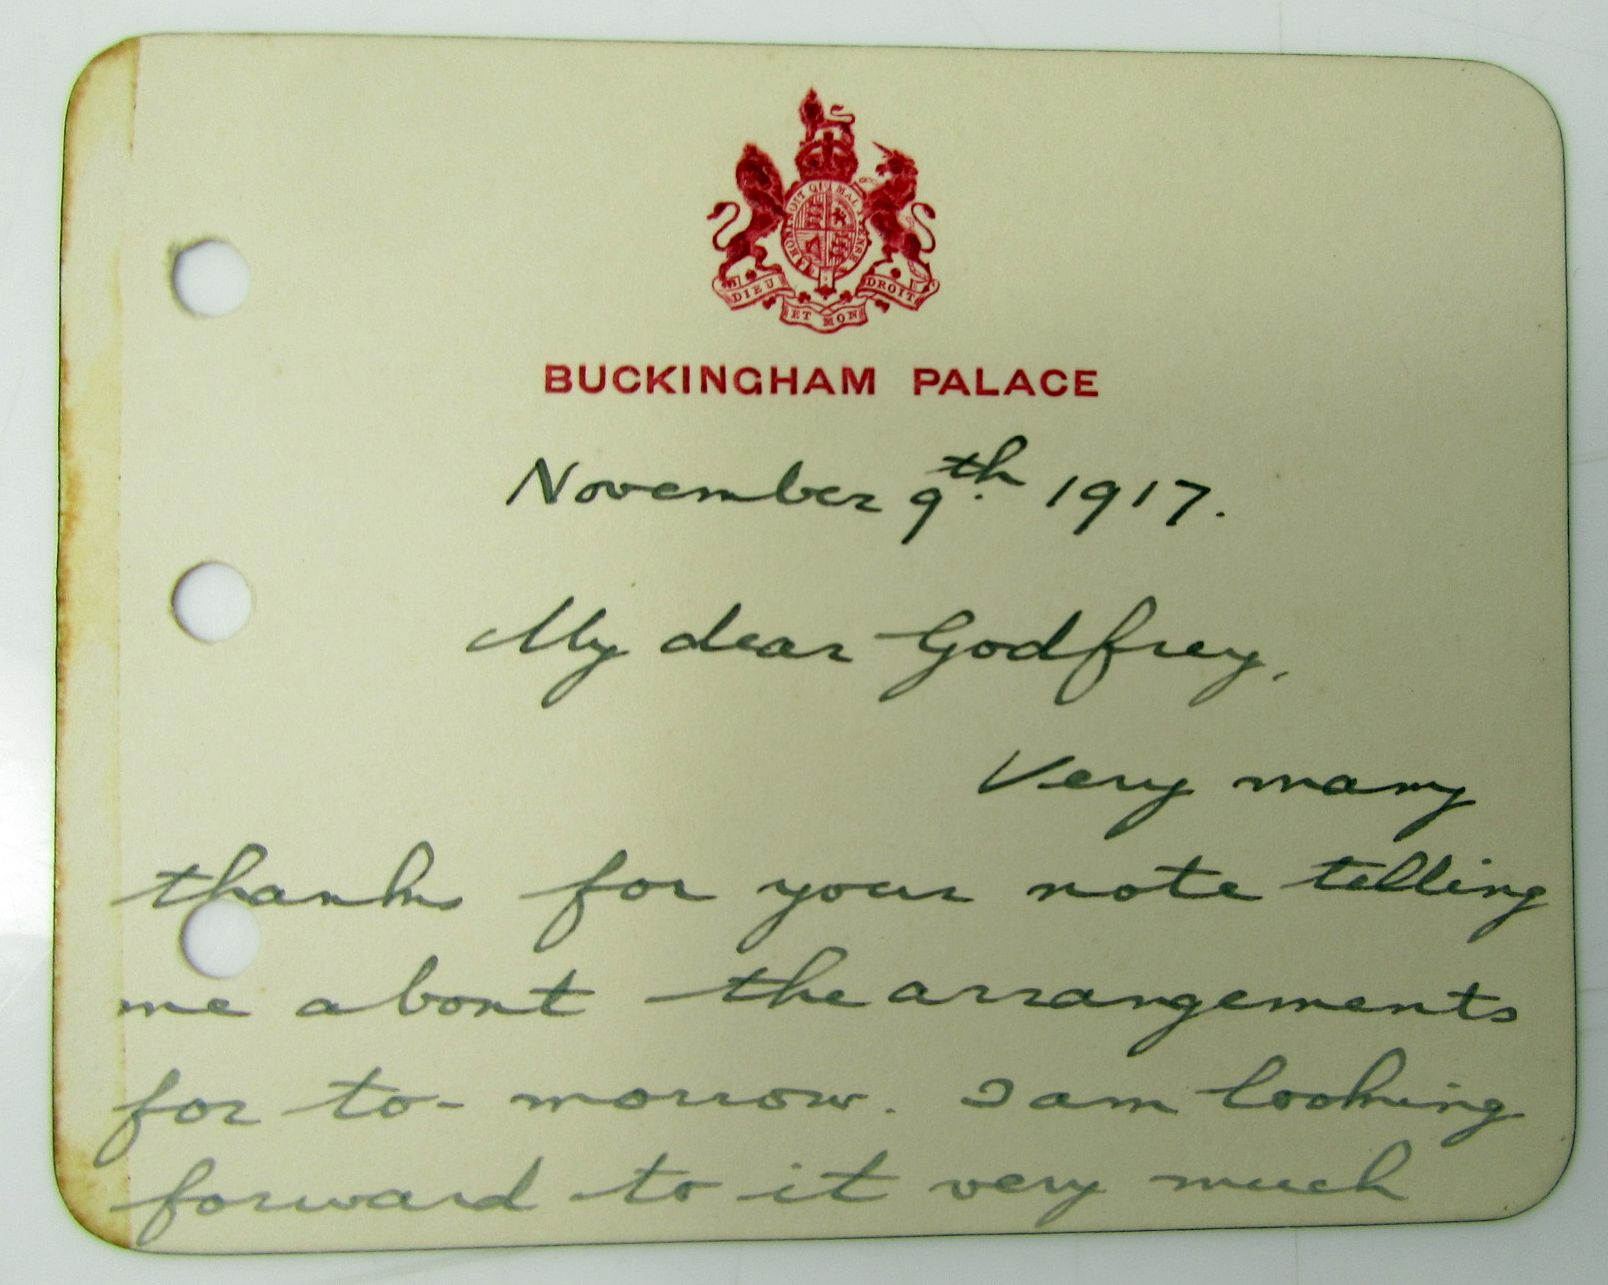 HONI SOIT QUI MAL Y PENSE
DIEU ET MON DROIT
BUCKINGHAM PALACE
November 9th. 1917.
My dear Godfrey,
Very many
thanks for your note telling
me about the arrangements
for to-morrow. I am looking
forward to it very much